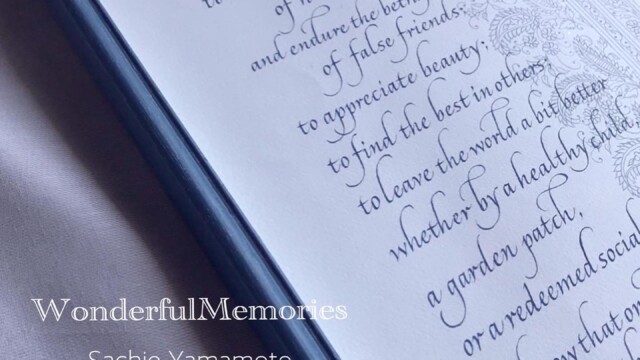 to
of
and endure the
of false friends;
to appreciate beauty;
to find the best in others;
to leave the world a bit better
whether by a healthy child,
a garden patch,
or a redeemed social
that
WonderfulMemories
Sachio Yamamoto